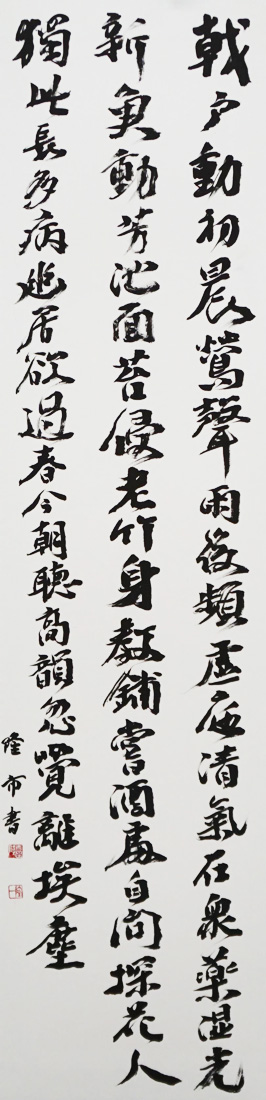 戟户動初晨鶯聲雨後頻虛庭清氣在衆藥濕光
新魚動芳池面苔侵老竹身教鋪嘗酒處自問探花人
獨此長多病幽居欲過春今朝聽高韻忽覺離埃塵
隆市書